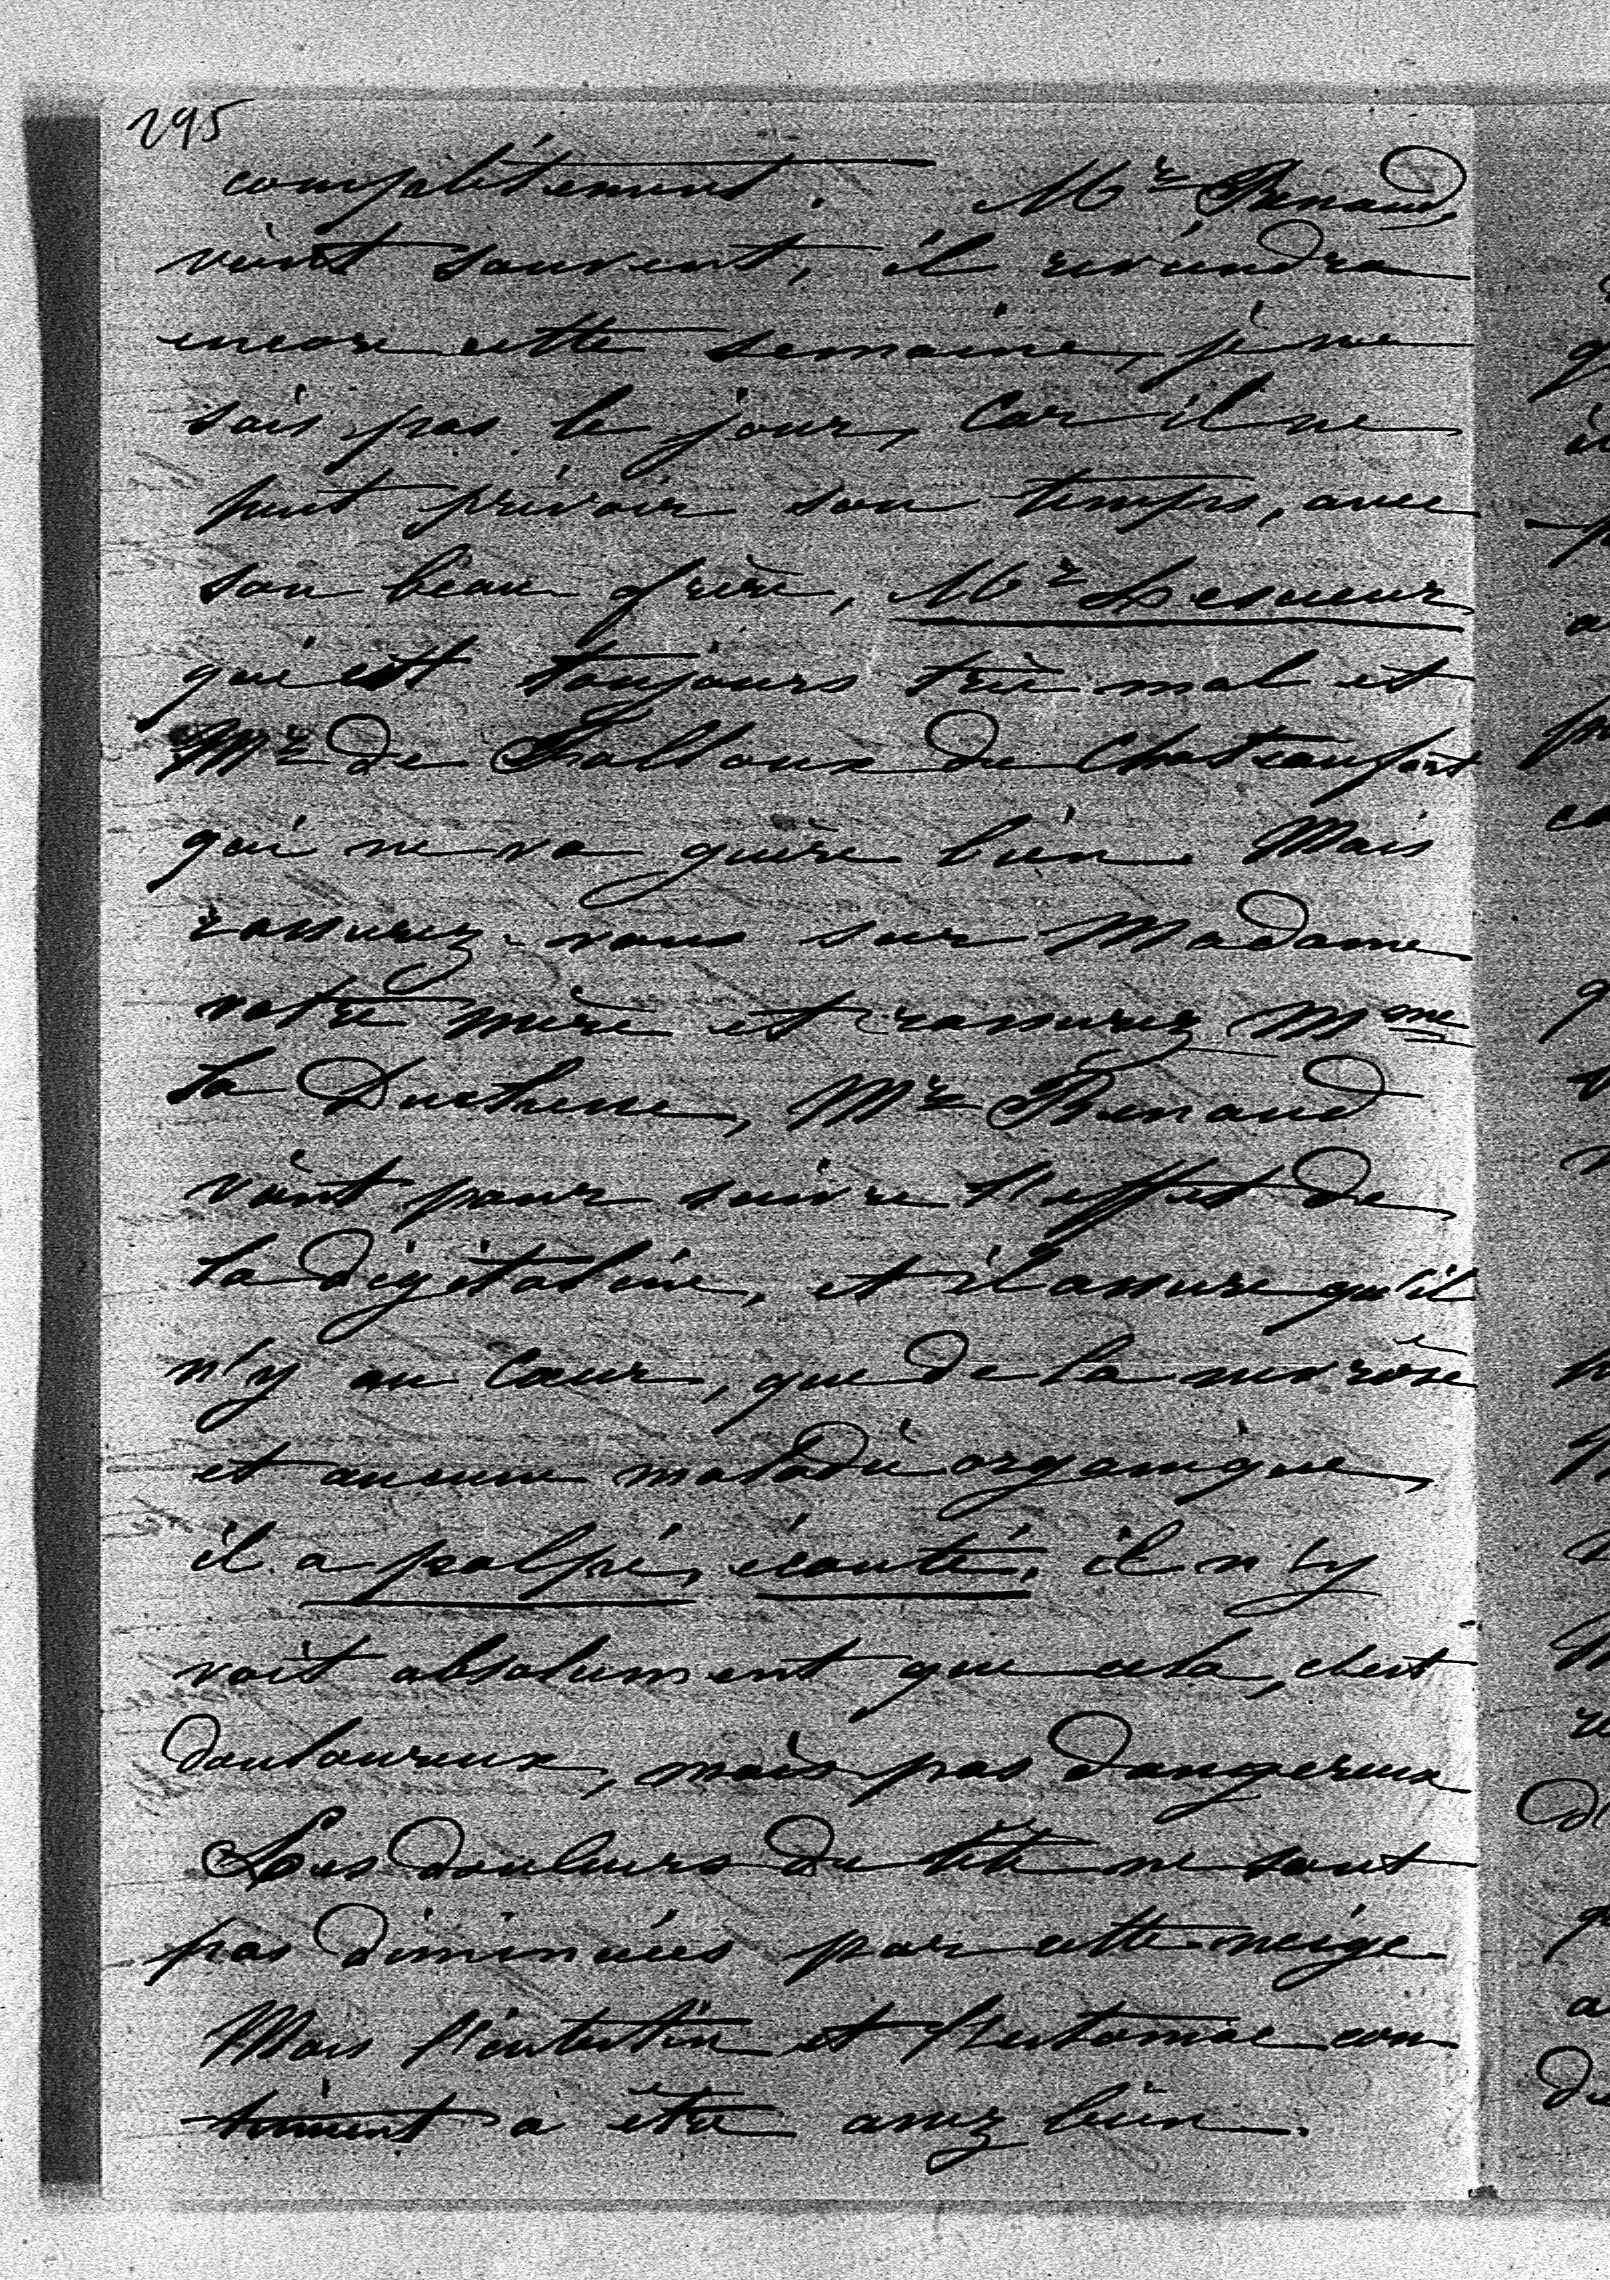 295
complètement. Mr Renaud
vient souvent, il reviendra
encore cette semaine, je ne
sais pas le jour, car il ne
peut prévoir son temps, avec
son beau frère, Mr Lesueur
qui est toujours très mal et
Mr de Falloux de Chateaufort
qui ne va guère bien. Mais
rassurez-vous sur Madame
votre mère et rassurez Mme
la Duchesse, Mr Renaud
vient pour suivre l'effet de
la digitaline, et il assure qu'il
n'y au cœur, que de la névrose
et aucune maladie organique,
il a palpé, écouté, il n'y
voit absolument que cela, c'est
douloureux, mais pas dangereux
Les douleurs de tête ne sont
pas diminuées par cette neige
Mais l'intestin et l'estomac con
tinuent à être assez bien.